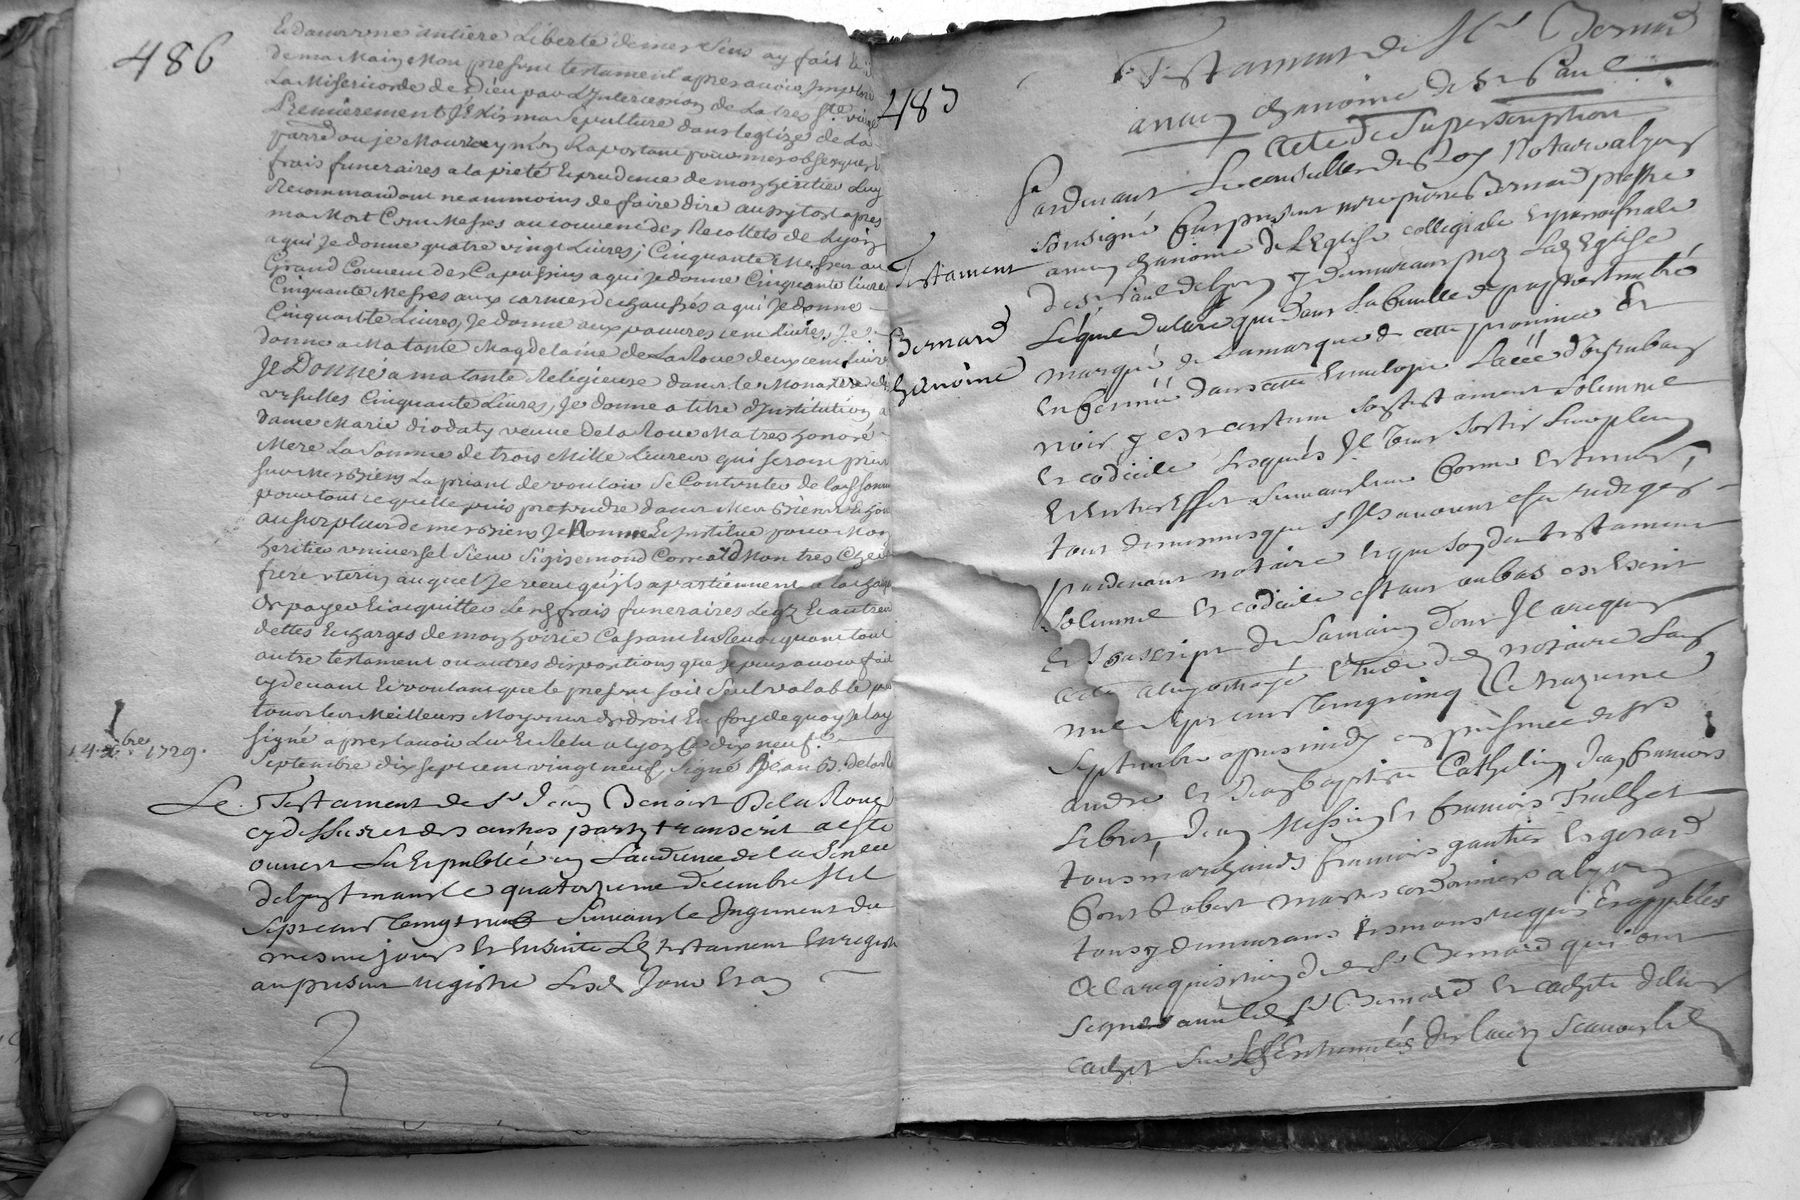 486
Et dans une antiere Liberté de mes Sens ay fait
de ma Main Mon present testament apres avoir Imploré
La Misericorde de Dieu par L'Intercession de La tres Ste vierge
Premierement J'Elis ma Sepulture dans leglize de La
parroe ou je Mourray m'en Raportant pour mes obseques
frais funeraires a la pieté Et prudence de mon heritier Luy
Recommandant neammoins de faire dire aussytost apres
ma Mort Cent Messes au couvent des Recollets de Lyon
a qui Je donne quatre vingt Livres; Cinquante Messes au
Grand Couvent des Capussins a qui Je donne Cinquante livres
Cinquante Messes aux carmes dechaussés a qui Je donne
Cinquante Livres, Je donne aux pauvres cent Livres, Je
donne a Ma tante Magdelaine de La Roue deux cent Livres
Je Donne a ma tante Religieuse dans le Monastere des
ursulles Cinquante Livres; Je donne a titre d'Institution a
dame Marie diodaty veuve de la Roue Ma tres honoré
Mere La Somme de trois Mille Livres qui seront pris
sur Mes Biens La priant de vouloir Se Contenter de lad. somme
pour tout ce quelle puis pretendre dans Mes Biens
au surplus de mes Biens Je Nomme Et Institue pour Mon
heritier universel Sieur Sigisemond Mon tres Cher
frere uterin auquel Je veux qu'ils apartiennent a la charge
De payer Et acquitter Lesd frais funeraires Legz Et autres
dettes Et charges de mon hoirie Cassant Et Revoquant tout
autre testament ou autres dispositions que Je puis avoir fait
cy devant Et voulant que le present soit Seul valable par
tous les Meilleurs Moyens de droit En foy de quoy Je l'ay
signé apres l'avoir Lu Et Relu a Lyon le dix neuf
Septembre dix sept cent vingt neuf, Signé Jean B. Delaroue
14. xbre 1729.
Le Testament de Sr Jean Benoist De la Roue
cy dessus et des autres parts transcrit a esté
ouvert Lu Et publié en L'audience de la Senéc
de Lyon Mardy le quatorzieme decembre Mil
Sept cent vingt neuf Suivant le Jugement du
mesme jour Et Ensuite Led testament Enregistré
au present registre Lesd Jour Et an
Testament de Mre Bernard
ancien Chanoine de St Paul
Acte de Superscription
487
Testament
Bernard
Chanoine
Pardevant Le conseiller du Roy Notaire a Lyon
Soussigné fut present mre pierre Bernard prestre
ancien chanoine de L'Eglise collegiale Et parroissiale
de St Paul de Lyon y demeurant prez Lad Eglise
Lequel declare que dans La feuille de papier
marqué de La marque de cette province Et
Enfermée dans cette Envelope Lacée d'un ruban
noir y est contenu Son testament Solemnel
Et codicile Lesquels Il veut Sortir Leur plein
Et Entier Effet Suivant leur forme Et teneur,
tout de mesme que S'Ils avoient esté redigés
pardevant notaire Et que Sond testament
Solemnel Et codicile est au bas Escrit
Et Souscript de Sa main dont Il a requis
acte a Lyon Etude dud notaire L'an
mil Sept cent vingt cinq Le treizieme
Septembre apres midy en presence de Srs
André Et Jean baptiste Cathelin, Jean francois
Lebrun, Jean Messier Et francois Trulhet
tous marchands francois gautier Et gerard
font Robert maitres cordonniers a Lyon
tous y demeurans temoins requis Et appellés
a la requisition dud Sr Bernard qui ont
Signé avec led Sr Bernard Et cacheté de leur
cachet Sur les Extremités du lacet Scavoir led